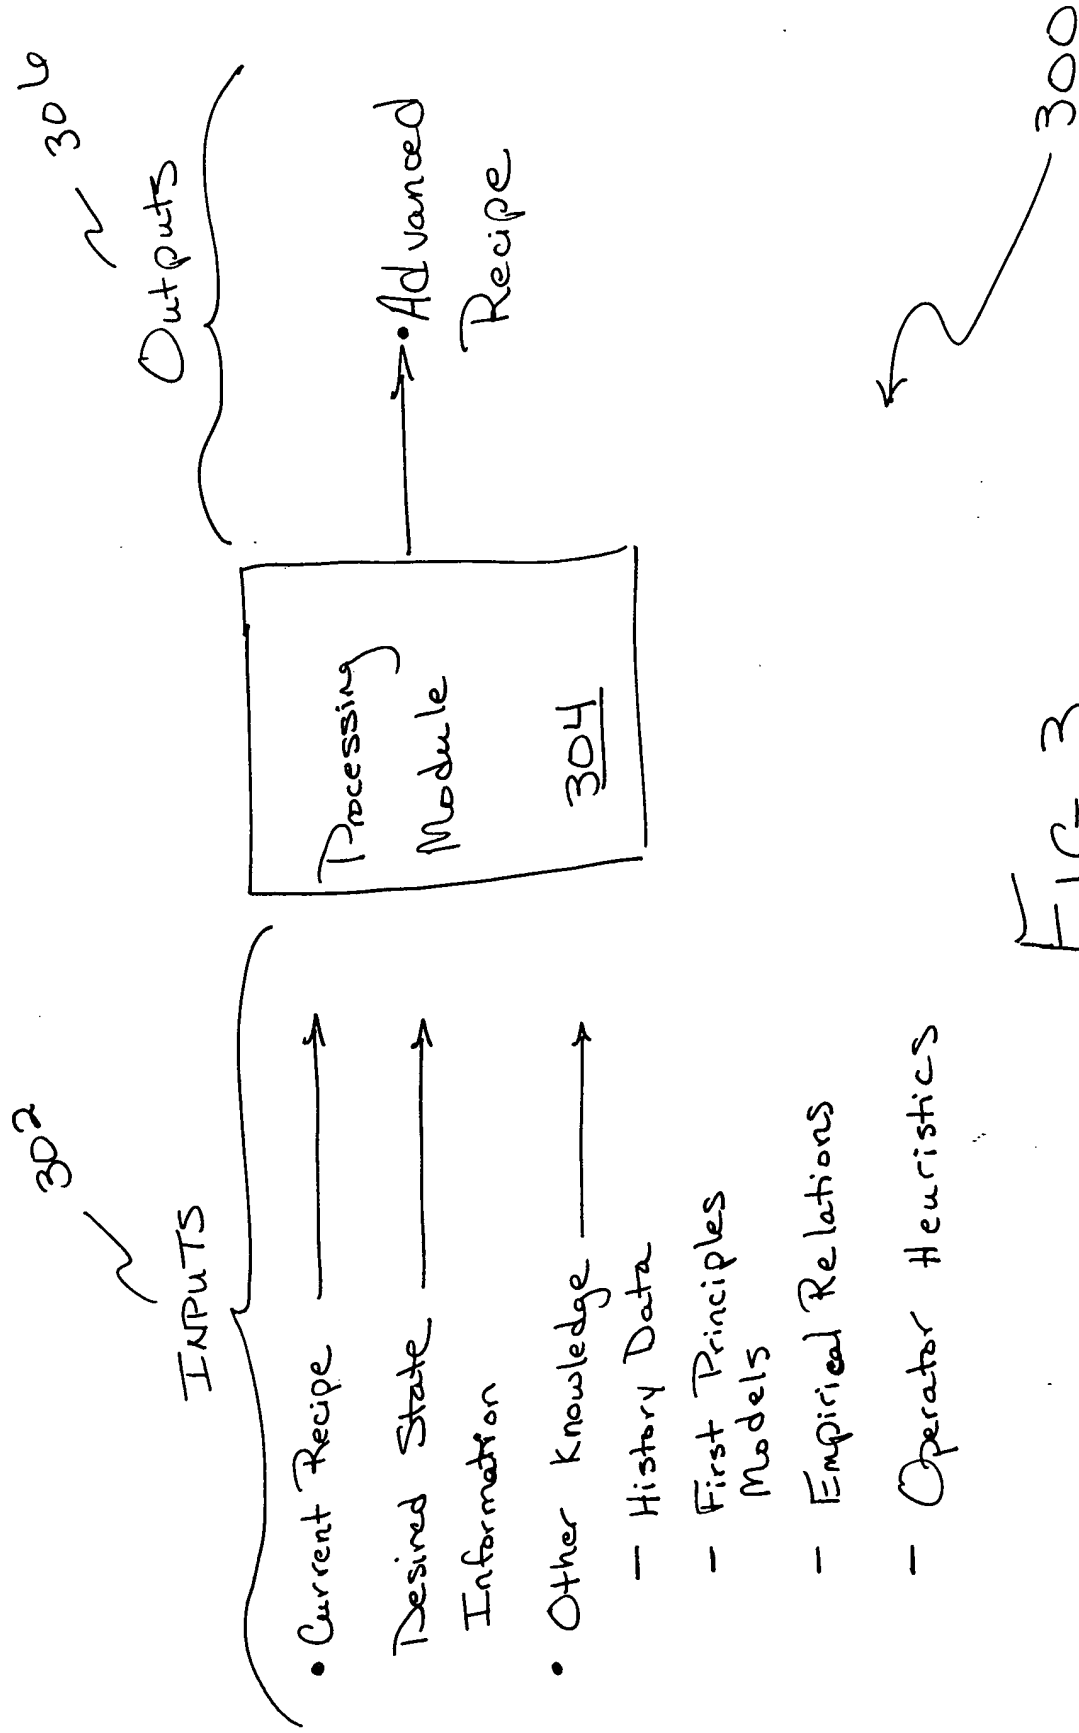 302
INPUTS
• Current Recipe
Desired State
Information
• Other Knowledge
- History Data
- First Principles
Models
- Empirical Relations
- Operator Heuristics
Processing
Module
304
306
Outputs
• Advanced
Recipe
300
FIG. 3